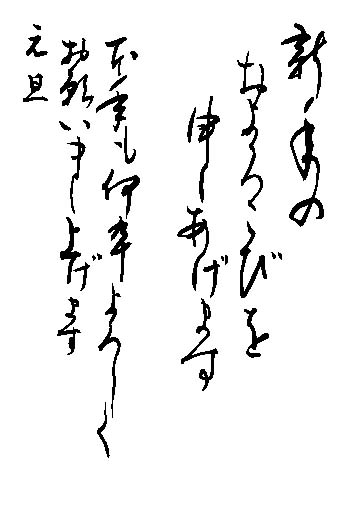 新年の
およろこびを
申しあげます
本年も何卒よろしく
お願いまし上げます
元旦